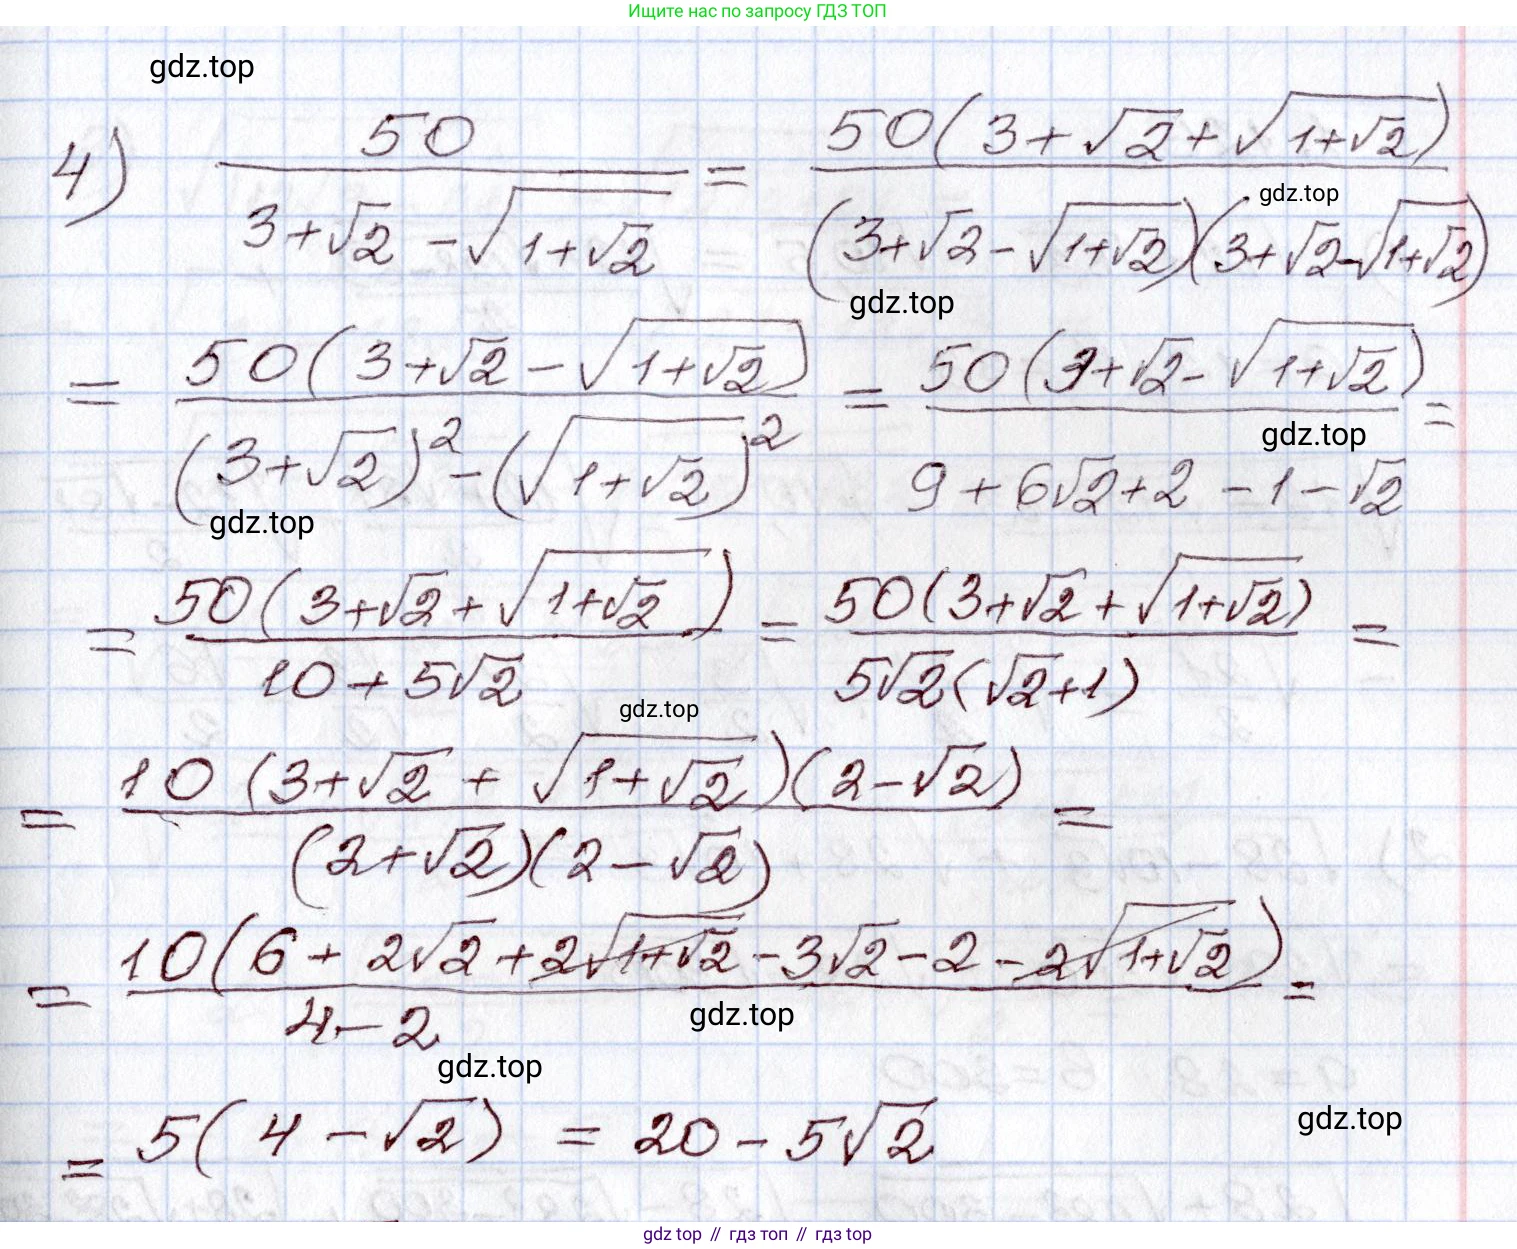 Ищите нас по запросу ГДЗ ТОП
gdz.top
4) 50 / (3+√2 - √(1+√2)) = 50(3+√2+√(1+√2)) / ((3+√2-√(1+√2))(3+√2-√(1+√2)))
gdz.top
gdz.top
= 50(3+√2-√(1+√2)) / ((3+√2)²-(√(1+√2))²) = 50(3+√2-√(1+√2)) / (9+6√2+2-1-√2) =
gdz.top
gdz.top
= 50(3+√2+√(1+√2)) / (10+5√2) = 50(3+√2+√(1+√2)) / (5√2(√2+1)) =
gdz.top
= 10(3+√2+√(1+√2))(2-√2) / ((2+√2)(2-√2)) =
= 10(6+2√2+2√(1+√2)-3√2-2-2√(1+√2)) / (4-2) =
gdz.top
gdz.top
= 5(4-√2) = 20-5√2
gdz.top
gdz top // гдз топ // гдз top